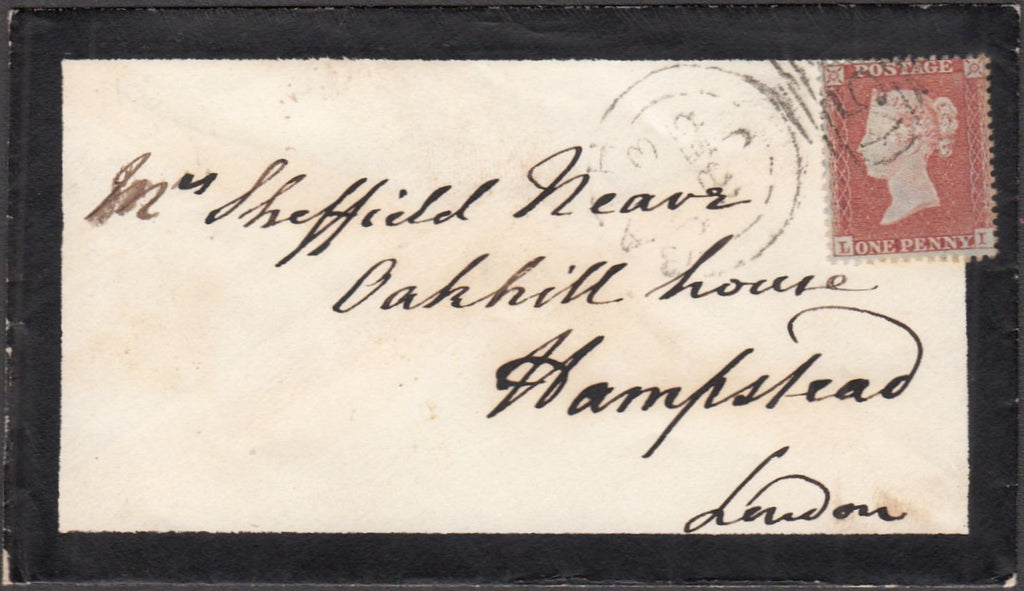 Mrs Sheffield Neave
Oakhill house
Hampstead
London
POSTAGE
L ONE PENNY I